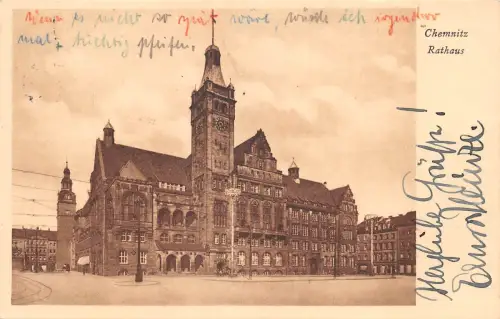 Wenn es nicht so
wär, würde ich
mal tüchtig pfeifen.
Chemnitz
Rathaus
Herzliche Grüße!